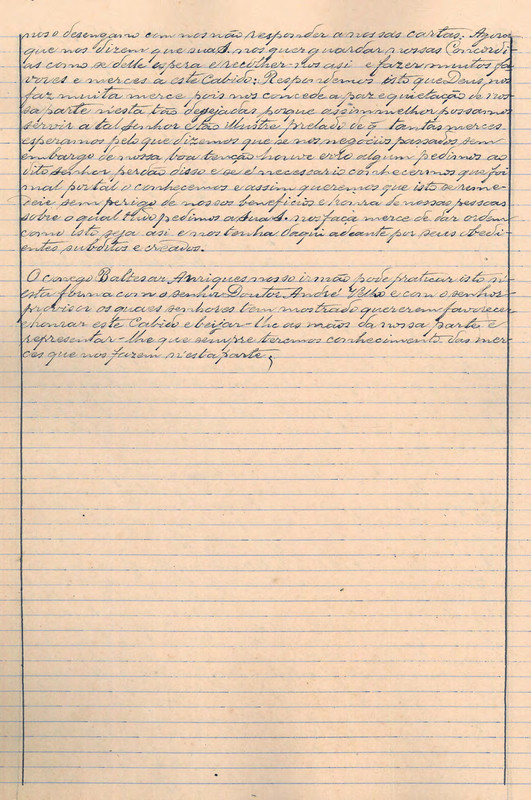 noso desengano com nos não responder a nossas cartas. Agora
que nos dizem que sua S. nos quer guardar nossas Concordi-
as como se delle espera e recolher-nos asi e fazer muitos fa-
vores e merces a este Cabido: Respondemos isto que Deus nos
faz muita merce pois nos concede a paz e quietação de nos-
sa parte n'esta tão desejadas, porque assim melhor possamos
servir a tal Senhor e tão illustre prelado de q̃ tantas merces
esperamos pelo que dizemos que se nos negocios passados, sem
embargo de nossa boa tenção houve erro algum pedimos ao
dito senhor perdão disso e se é necessario conhecermos que foi
mal por tal o conhecemos e assim queremos que isto se reme-
deie sem perigo de nossos beneficios e honra de nossas pessoas
sobre o qual tudo pedimos a sua S. nos faça merce de dar ordem
como isto seja asi e nos tenha daqui adeante por seus obedi-
entes, subditos e creados.
O conego Baltesar Anriques nosso irmão pode praticar isto n'-
esta forma com o senhor Doutor André Velho e com o senhor
provisor os quaes senhores tem mostrado quererem favorecer
e honrar este Cabido e beijar-lhe as mãos da nossa parte e
representar-lhe que sempre teremos conhecimento das mer-
cês que nos fazem n'esta parte;